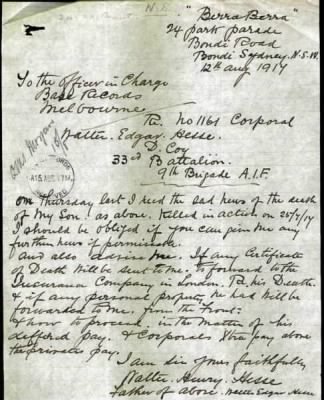 N.S.
"Berra Berra"
24 Park Parade
Bondi Road
Bondi Sydney. N.S.W.
12th Aug 1917
To the Officer in Charge
Base Records
Melbourne
Re. No 1161 Corporal
Walter. Edgar. Hesse.
D. Coy
33rd Battalion.
9th Brigade A.I.F.
On Thursday last I recd the sad news of the death
of My Son. as above. Killed in action on 20/7/17
I should be obliged if you can give me any
further news if permissable.
and also advise Me. If any Certificate
of Death Will be sent to Me, to forward to the
Insurance Company in London. Re. his Death.
& if any personal property he had Will be
forwarded to Me. from the Front.
& how to proceed in the Matter of his
deffered pay. & Corporals Xtra pay above
the private pay.
I am Sir Yours faithfully
Walter. Henry. Hesse
Father of above. Walter Edgar Hesse